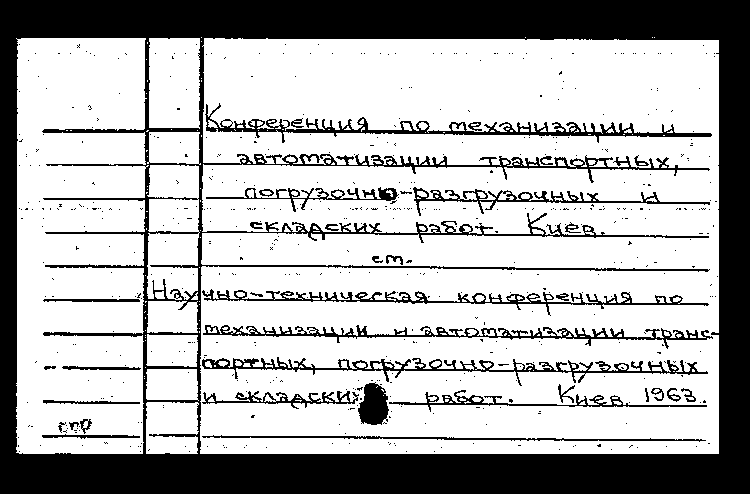 Конференция по механизации и
автоматизации транспортных,
погрузочно-разгрузочных и
складских работ. Киев.
см.
Научно-техническая конференция по
механизации и автоматизации транс-
портных, погрузочно-разгрузочных
и складских работ. Киев. 1963.
спр